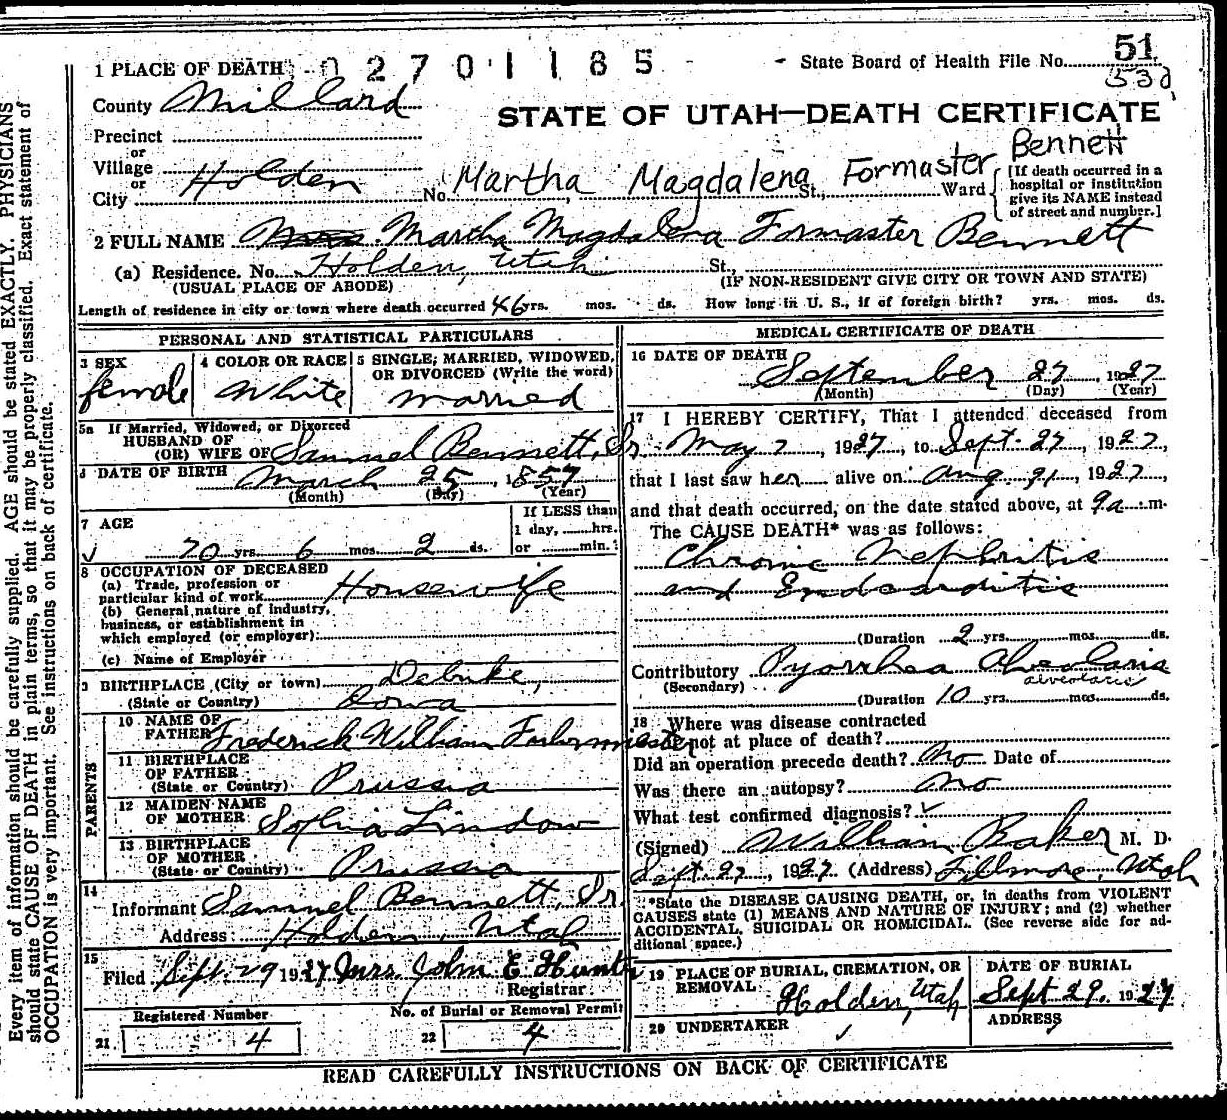 51
1 PLACE OF DEATH 0 2 7 0 1 1 8 5 State Board of Health File No.
53d
County Millard
STATE OF UTAH—DEATH CERTIFICATE
Precinct
or
Village
or
City Holden No. Martha Magdalena St., Formaster Ward Bennett
[If death occurred in a
hospital or institution
give its NAME instead
of street and number.]
2 FULL NAME Martha Magdalena Formaster Bennett
(a) Residence. No. Holden, Utah St.,
(USUAL PLACE OF ABODE) (IF NON-RESIDENT GIVE CITY OR TOWN AND STATE)
Length of residence in city or town where death occurred 46 yrs. mos. ds. How long in U. S., if of foreign birth? yrs. mos. ds.
PERSONAL AND STATISTICAL PARTICULARS
3 SEX
female
4 COLOR OR RACE
White
5 SINGLE, MARRIED, WIDOWED,
OR DIVORCED (Write the word)
married
5a If Married, Widowed, or Divorced
HUSBAND OF
(OR) WIFE OF Samuel Bennett, Sr.
DATE OF BIRTH March 25, 1857
(Month) (Day) (Year)
7 AGE
70 yrs. 6 mos. 2 ds.
If LESS than
1 day, hrs.
or min.
8 OCCUPATION OF DECEASED
(a) Trade, profession or
particular kind of work Housewife
(b) General nature of industry,
business, or establishment in
which employed (or employer):
(c) Name of Employer
BIRTHPLACE (City or town) Debuke,
(State or Country) Iowa
PARENTS
10 NAME OF
FATHER Frederick William
11 BIRTHPLACE
OF FATHER
(State or Country) Prussia
12 MAIDEN NAME
OF MOTHER Sophia Lindow
13 BIRTHPLACE
OF MOTHER
(State or Country) Prussia
14
Informant Samuel Bennett, Sr.
Address: Holden, Utah
15
Filed Sept. 29 1927 Mrs. John E Hunter
Registrar
Registered Number
21 4
No. of Burial or Removal Permit
22 4
MEDICAL CERTIFICATE OF DEATH
16 DATE OF DEATH
September 27, 1927
(Month) (Day) (Year)
17 I HEREBY CERTIFY, That I attended deceased from
May 7, 1927, to Sept. 27, 1927,
that I last saw her alive on Aug 31, 1927,
and that death occurred, on the date stated above, at 9 a.m.
The CAUSE DEATH* was as follows:
Chronic Nephritis
and Endocarditis
(Duration 2 yrs. mos. ds.
Contributory Pyorrhea Alveolaris
(Secondary) alveolaris
(Duration 10 yrs. mos. ds.
18 Where was disease contracted
if not at place of death?
Did an operation precede death? No Date of
Was there an autopsy? No
What test confirmed diagnosis? ✓
(Signed) William Baker M. D.
Sept. 27, 1927. (Address) Fillmore, Utah
*State the DISEASE CAUSING DEATH, or, in deaths from VIOLENT
CAUSES state (1) MEANS AND NATURE OF INJURY; and (2) whether
ACCIDENTAL, SUICIDAL OR HOMICIDAL. (See reverse side for ad-
ditional space.)
19 PLACE OF BURIAL, CREMATION, OR
REMOVAL Holden, Utah
DATE OF BURIAL
Sept 29, 1927
20 UNDERTAKER
ADDRESS
READ CAREFULLY INSTRUCTIONS ON BACK OF CERTIFICATE
Every item of information should be carefully supplied. AGE should be stated EXACTLY. PHYSICIANS
should state CAUSE OF DEATH in plain terms, so that it may be properly classified. Exact statement of
OCCUPATION is very important. See instructions on back of certificate.